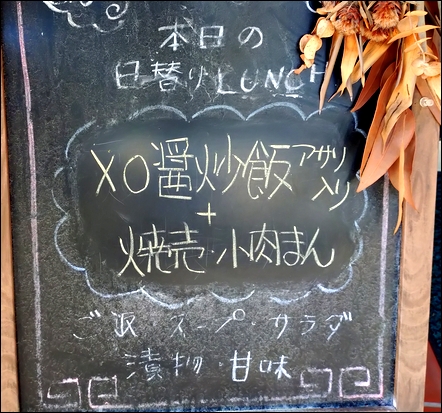 本日の
日替りLUNCH
XO醤炒飯アサリ入り
+
焼売・小肉まん
ご飯 スープ・サラダ
漬物・甘味